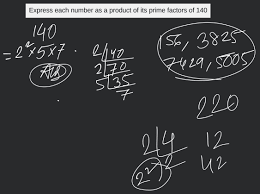 Express each number as a product of its prime factors of 140
140
= 2² × 5 × 7 .
2|140
2|70
5|35
7
156, 3825
7429, 5005
220
2|4
2
2²
12
42